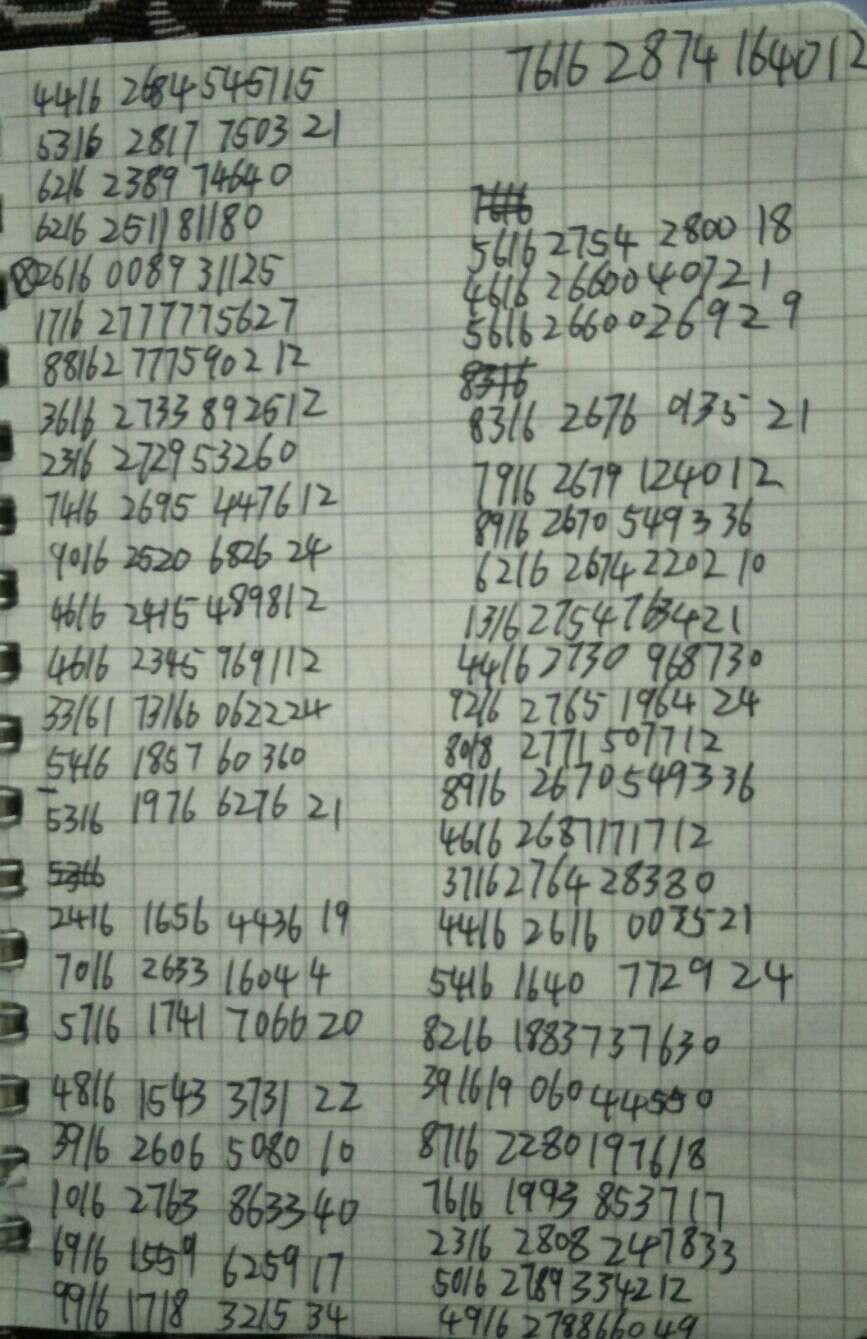 4416 2684 545115
5316 2817 7503 21
6216 2389 74640
6216 2511 81180
82616 0089 31125
1716 2777775627
88162 7775902 12
3616 2733 892612
2316 2729 53260
7416 2695 447612
9016 2520 6826 24
4616 2415 489812
4616 2345 769112
33161 73166 062224
5416 1857 60360
5316 1976 6276 21
5316
2416 1656 4436 19
7016 2633 16044
5716 1741 706620
4816 1543 3731 22
3916 2606 5080 10
1016 2763 8633 40
6916 1559 6259 17
9916 1718 3215 34
7616 2874 164012
7616
5616 2754 2800 18
4616 26600 40721
5616 266002692 9
8316
8316 2676 0135 21
7916 2679 124012
8916 2670 549336
6216 2674 220210
1316 2754 763421
4416 2730 968730
9216 2765 1964 24
8018 2771 507712
8916 2670549336
4616 2687171712
3716 2764 28380
4416 2616 003521
5416 1640 7729 24
8216 1883737630
391619 060 44550
8716 2280197618
7616 1993 853717
2316 2808 247833
5016 2789334212
4916 278866049